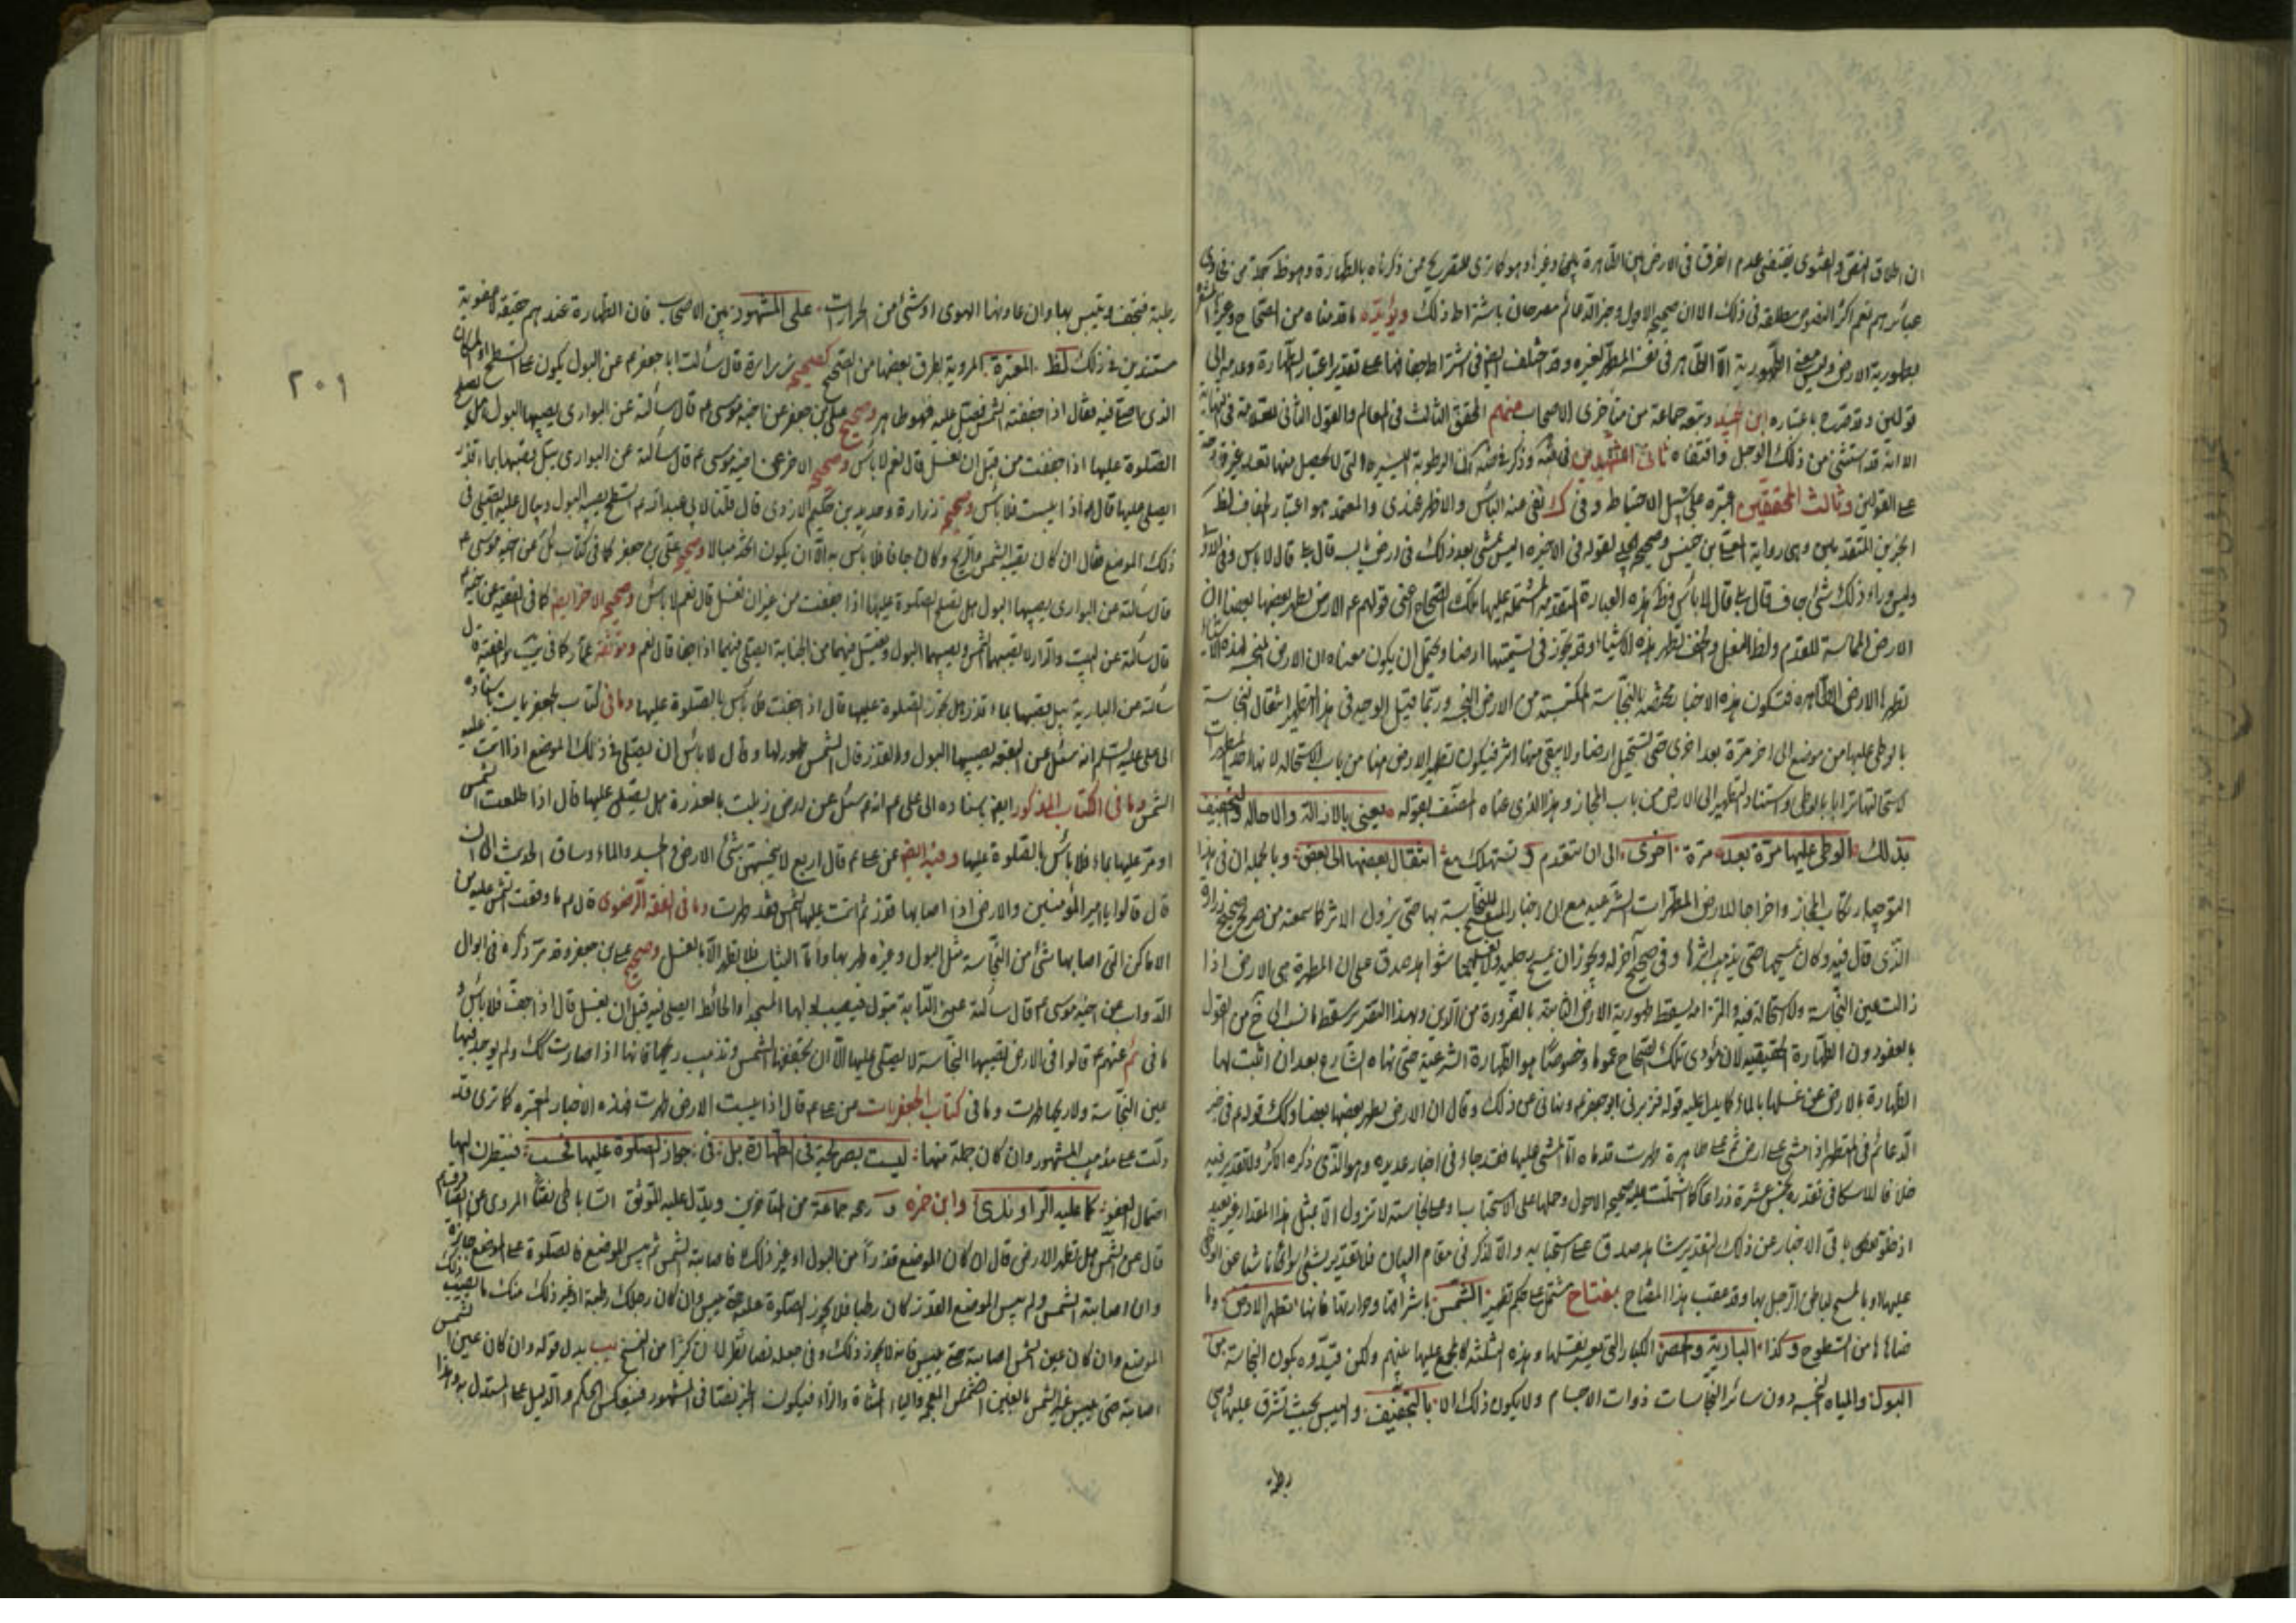 ان اطلاق النص والفتوى يقتضى عدم الفرق فى الارض بين الطاهرة وغيرها وهو كما ترى للتصريح من ذكرناه بالطهارة وهو ظ جملة من
عبائرهم نعم اكثر النصوص مطلقة فى ذلك الا ان صحيح الاحول وخبر الدعائم مصرحان باشتراط ذلك ويؤيده ما قدمناه من الصحاح
بطهورية الارض وليس معنى الطهورية الا الطاهر فى نفسه المطهر لغيره وقد اختلف ايض فى اشتراط جفافها على تقدير اعتبار الطهارة وعدمه الى
قولين وقد صرح باعتباره ابن الجنيد وتبعه جماعة من متأخرى الاصحاب منهم المحقق الثالث فى المعالم والقول الثانى للعلامة فى النهاية
الا انه قد استثنى من ذلك الوحل واقتفاه ثانى الشهيدين فى وذكر فى ضه ان الرطوبة اليسيرة التى لا يحصل منها تعد غير قادحة
على القولين وثالث المحققين اعتبره على سبيل الاحتياط وفى ك نفى عنه البأس والاظهر عندى والمعتمد هو اعتبار الجفاف لظ
الخبرين المتقدمين وهى رواية المعلى بن خنيس وصحيح الحلبى لقوله فى الاخيرة اليس تمشى بعد ذلك فى ارض يابسة قال بلى قال لا بأس وفى الاولى
وليس وراء ذلك شئ جاف قال بلى قال لا بأس وظ هذه العبارة المتقدمة المشتملة عليها تلك الصحاح اعنى قولهم عم الارض يطهر بعضها بعضا ان
الارض المماسة للقدم ولظ النعل والخف تطهر هذه الاشياء وقد تجوز فى تسميتها ارضا ويحتمل ان يكون معناه ان الارض النجسة لهذه الاشياء
تطهرها الارض الطاهرة فتكون هذه الاخبار مختصة بالنجاسة المكتسبة من الارض النجسة وربما قيل الوجه فى هذا التطهير انتقال النجاسة
بالوطى عليها من موضع الى اخر مرة بعد اخرى حتى تستحيل ارضا ولا يبقى منها اثر فيكون تطهير الارض منها من باب الاستحالة لانها احد المطهرات
لاستحالتها ترابا بالوطى واستناد التطهير الى الارض من باب المجاز وهذا الذى عناه المصنف بقوله يعنى بالازالة والاحالة والتجفيف
بذلك الوطى عليها مرة بعد مرة اخرى الى ان تنعدم وتستهلك مع انتقال بعضها الى بعض وبالجملة ان فى هذا
التوجيه ارتكاب المجاز واخراجا للارض عن المطهرات الشرعية مع ان اخبار المسح للنجاسة بها حتى يزول الاثر كما سمعته من صحيح زرارة
الذى قال فيه وكان يمسحها حتى يذهب اثرها وفى صحيح آخر له ويجوز ان يمسح رجليه ولا يغسلهما شواهد صدق على ان المطهرة هى الارض اذا
زالت عين النجاسة ولا استحالة فيه والتزامه يسقط طهورية الارض الثابتة بالضرورة من الدين وبهذا التقرير سقط ما نسب الى خ من القول
بالعفو دون الطهارة الحقيقية لان مؤدى تلك الصحاح عموما وخصوصا هو الطهارة الشرعية حتى نهاه الشارع بعد ان اثبت لها
الطهارة بالارض عن غسلها بالماء كما يدل عليه قوله فزبرنى ابو جعفر عم ونهانى عن ذلك وقال ان الارض يطهر بعضها بعضا وكذلك قوله عم فى خبر
الدعائم فى المتطهر اذا مشى على ارض نجسة ثم على طاهرة طهرت قدماه اما المشى عليها فقد جاء فى اخبار عديده وهو الذى ذكره الاكثر ولا تقدير فيه
خلافا للاسكافى فقدره بخمس عشرة ذراعا كما اشتملت عليه صحيحة الاحول وحملها على الاستحباب او على نجاسة لا تزول الا بمثل هذا المقدار غير بعيد
اذ خلو باقى الاخبار عن ذلك التقدير شاهد صدق على استحبابه والا لذكر فى مقام البيان فلا تقدير بشئ سوى ما كان ناشيا عن الوطى
عليها او بالمسح لباطن الرجل بها وقد عقب هذا المفتاح بمفتاح مشتمل على حكم تطهير الشمس باشراقها وحرارتها فانها تطهر الارض وما
ضاهاها من السطوح وكذا البارية والحصر الكبار التى يعسر نقلها وهذه الثلثة كالمجمع عليها بينهم ولكن قيدوه بكون النجاسة من
البول والمياه النجسة دون سائر النجاسات ذوات الاجسام ولا يكون ذلك الا بالتجفيف واليبس بحيث تشرق عليها وهى
رطبة
٢٠١
رطبة فتجف وتيبس بها وان عاونها الهوى او شئ من الحرارات على المشهور بين الاصحاب فان الطهارة عندهم حقيقة لا عفوية
مستندين فى ذلك لظ المعتبرة المروية بطرق بعضها من الصحيح كصحيح زرارة قال سألت ابا جعفر عم عن البول يكون على السطح او المكان
الذى اصلى فيه فقال اذا جففته الشمس فصل عليه فهو طاهر وصحيح على بن جعفر عن اخيه موسى عم قال سألته عن البوارى يصيبها البول هل تصلح
الصلوة عليها اذا جفت من قبل ان تغسل قال نعم لا بأس وصحيحه الاخر عن اخيه موسى عم قال سألته عن البوارى يبل قصبها بماء قذر
ايصلى عليها قال اذا يبست فلا بأس وصحيح زرارة وحديد بن حكيم الازدى قال قلنا لابى عبد الله عم السطح يصيبه البول ويبال عليه ايصلى فى
ذلك الموضع فقال ان كان تصيبه الشمس والريح وكان جافا فلا بأس به الا ان يكون اتخذ مبالا وصحيح على بن جعفر كما فى كتاب ئل عن اخيه موسى عم
قال سألته عن البوارى يصيبها البول هل تصلح الصلوة عليها اذا جفت من غير ان تغسل قال نعم لا بأس وصحيحه الاخر ايض كما فى الفقيه عن اخيه عم
قال سألته عن البيت والدار لا تصيبهما الشمس ويصيبهما البول ويغتسل فيهما من الجنابة ايصلى فيهما اذا جفا قال نعم وموثقة عمار كما فى يب والفقيه قال
سألته عن البارية يبل قصبها بماء قذر هل تجوز الصلوة عليها قال اذا جفت فلا بأس بالصلوة عليها وما فى كتاب الجعفريات باسناده
الى على عليه السلم انه سئل عن البقعة يصيبها البول والقذر قال الشمس طهور لها وقال لا بأس ان يصلى فى ذلك الموضع اذا اتت عليه
الشمس وما فى الكتاب المذكور ايض باسناده الى على عم انه عم سئل عن ارض زبلت بالعذرة هل يصلى عليها قال اذا طلعت الشمس
او مر عليها بماء فلا بأس بالصلوة عليها وفيه ايض عن على عم قال اربع لا ينجسهن شئ الارض والجسد والماء وساق الحديث الى ان
قال قالوا يا امير المؤمنين والارض اذا اصابها قذر ثم اتت عليها الشمس فقد طهرت وما فى الفقه الرضوى قال عم ما وقعت الشمس عليه من
الاماكن التى اصابها شئ من النجاسة مثل البول وغيره طهرتها واما الثياب فلا تطهر الا بالغسل وصحيح على بن جعفر وقد مر ذكره فى ابوال
الدواب عن اخيه موسى عم قال سألته عن الدابة تبول فيصيب بولها المسجد او الحائط ايصلى فيه قبل ان يغسل قال اذا جف فلا بأس و
ما فى ئم عنهم عم قالوا فى الارض تصيبها النجاسة لا يصلى عليها الا ان تجففها الشمس وتذهب ريحها فانها اذا صارت كك ولم يوجد فيها
عين النجاسة ولا ريحها طهرت وما فى كتاب الجعفريات عن على عم قال اذا يبست الارض طهرت فهذه الاخبار المعتبرة كما ترى قد
دلت على مذهب المشهور وان كان جملة منها ليست بصريحة فى الطهارة بل فى جواز الصلوة عليها فحسب فيتطرق اليها
احتمال العفو كما عليه الراوندى وابن حمزه ورجحه جماعة من المتأخرين ويدل عليه الموثق الساباطى نصا المروى عن الصادق عم
قال عن الشمس هل تطهر الارض قال اذا كان الموضع قذرا من البول او غير ذلك فاصابته الشمس ثم يبس الموضع فالصلوة على الموضع جائزة
وان اصابته الشمس ولم ييبس الموضع القذر وكان رطبا فلا يجوز الصلوة عليه حتى ييبس وان كان رجلك رطبة او غير ذلك منك ما يصيب ذلك
الموضع وان كان عين الشمس اصابته حتى ييبس فانه لا يجوز ذلك وفى جعله نصا نظر لان كثيرا من النسخ يب بدل قوله وان كان عين الشمس
اصابته حتى ييبس غير الشمس بالغين المعجمة والياء المثناة والراء فيكون الخبر نصا فى المشهور فينعكس الحكم والدليل على المستدل به وهذا